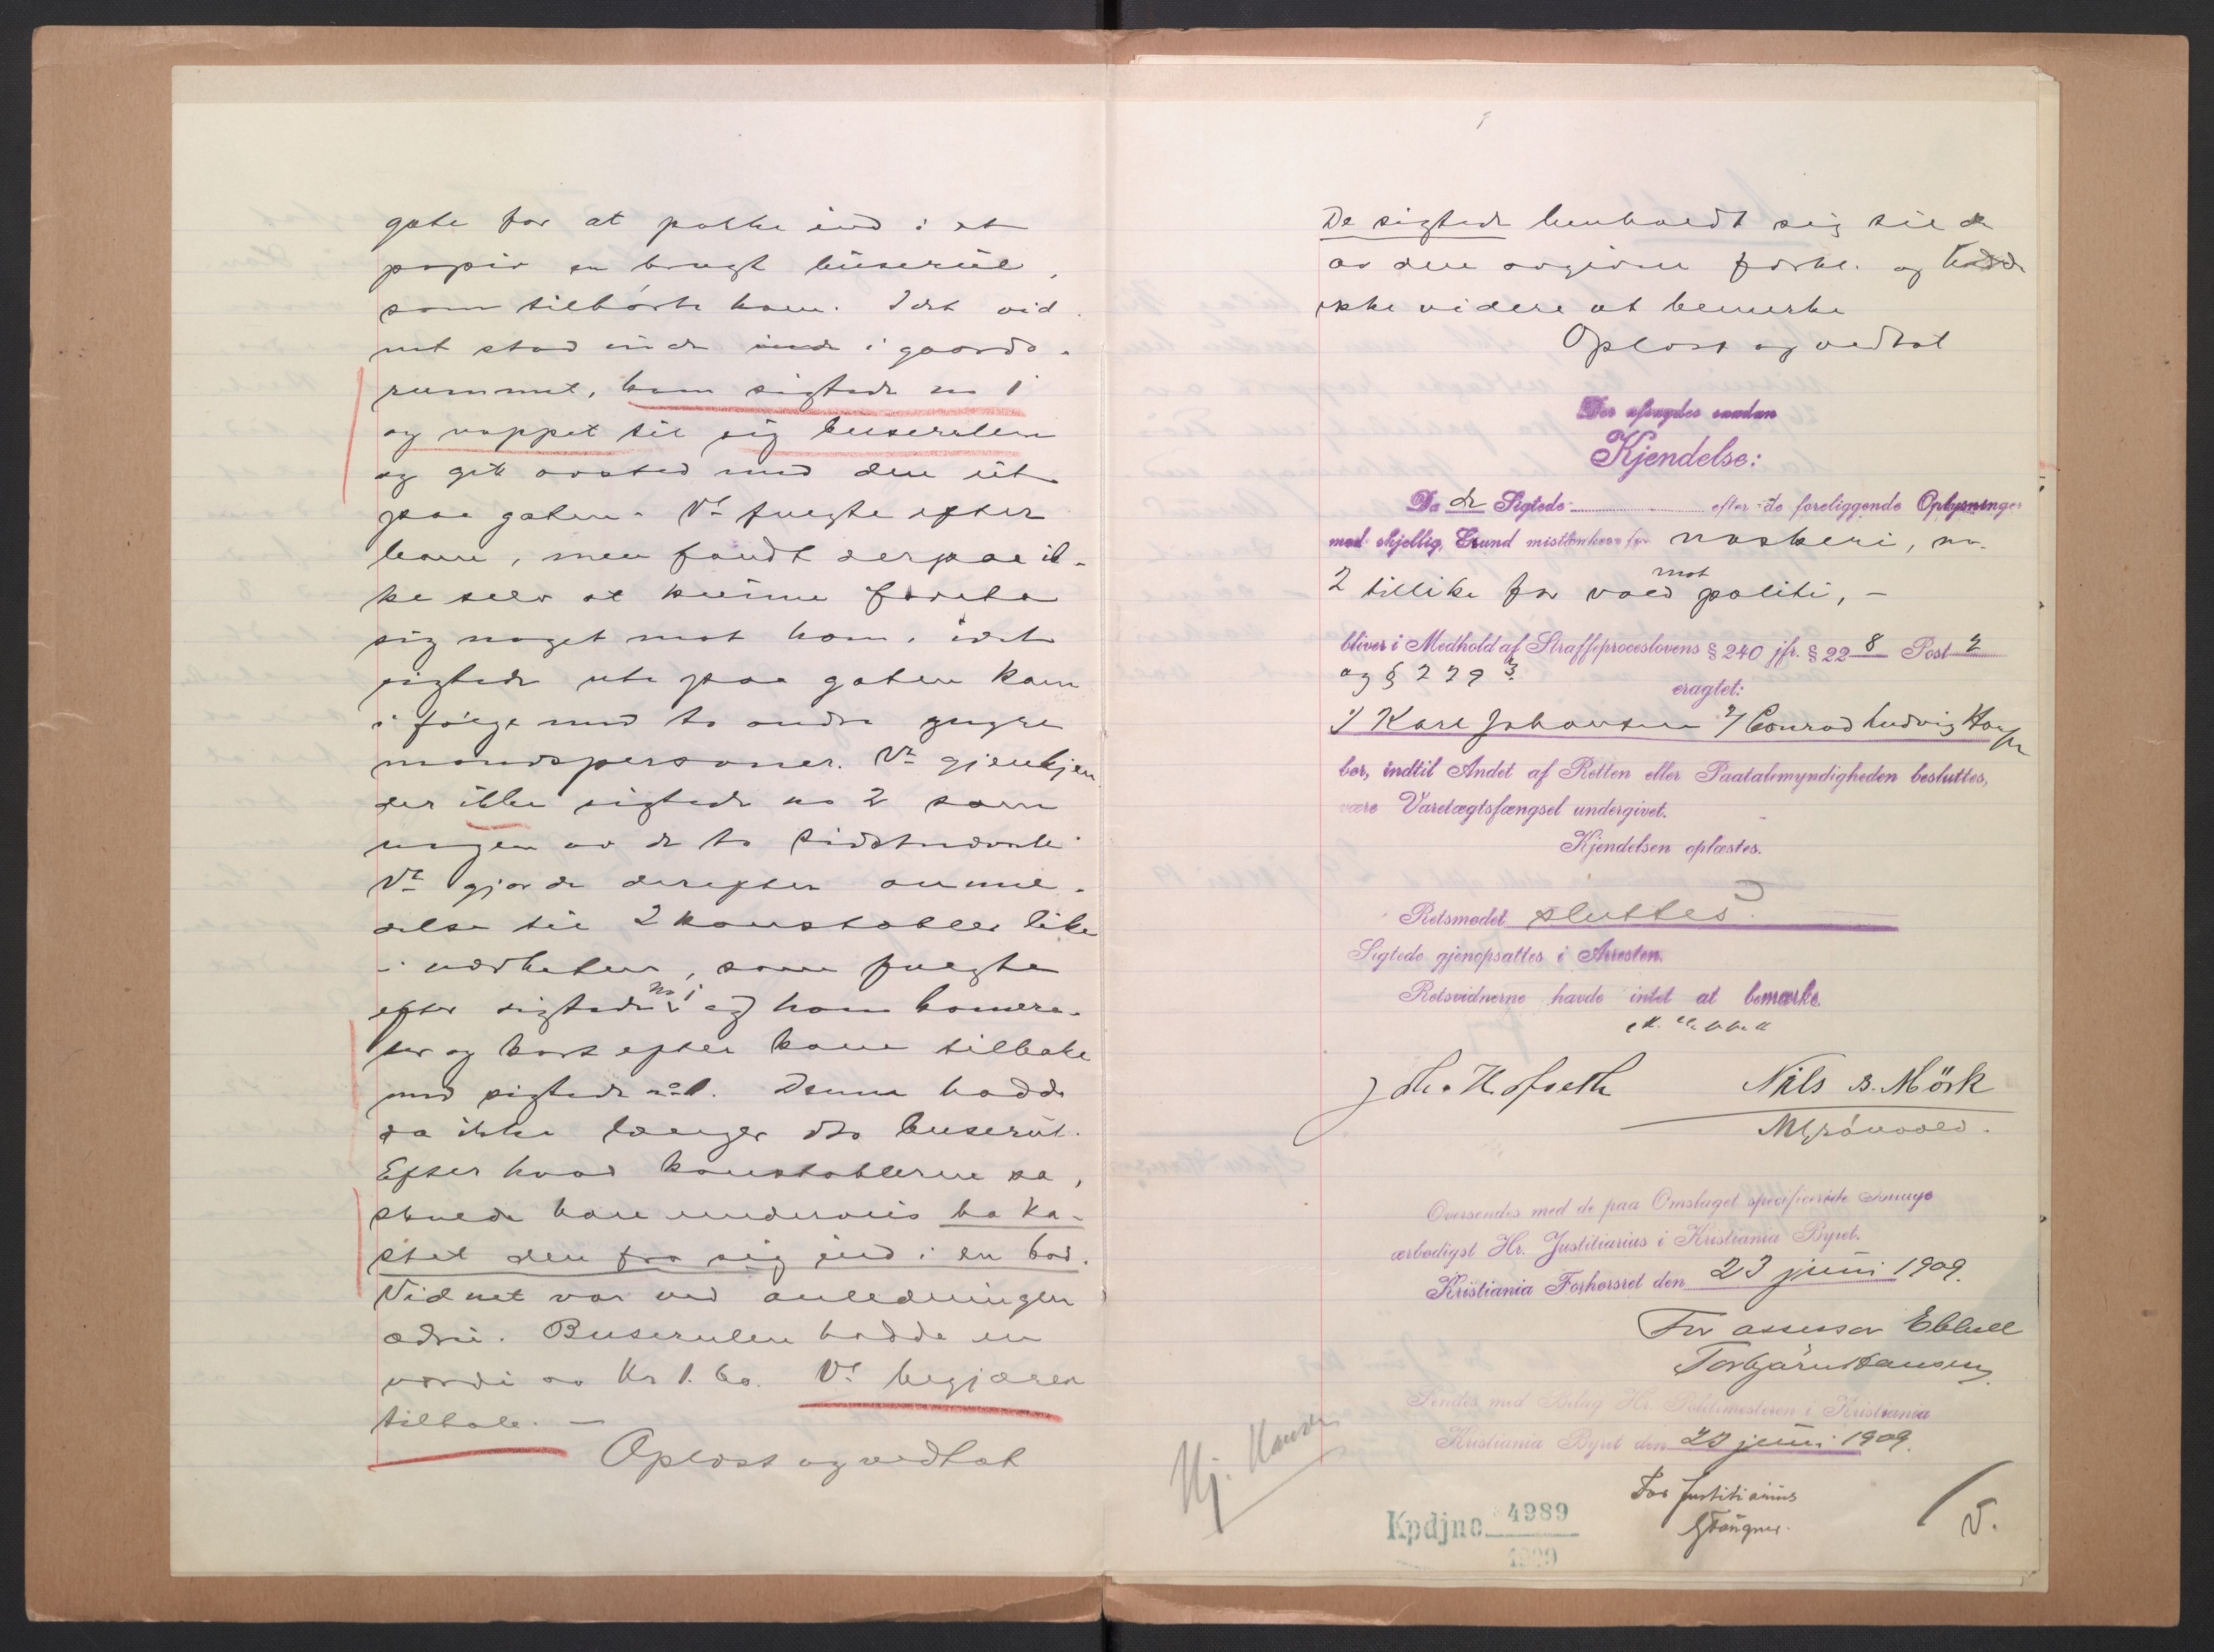 gate for at pakke ind i et
papir en brugt buserul,
som tilhørte ham. Idet vid-
net stod inde inde i gaards-
rummet, kom sigtede no 1
og nappet til sig buserulen
og gik avsted med den ut
paa gaten. Vt fulgte efter
ham, men fandt derpaa ik-
ke selv at kunne foreta
sig noget mot ham, idet
sigtede ute paa gaten kom
i følge med to andre yngre
mandspersoner. Vt gjenkjen
der ikke sigtede no 2 som
nogen av de to sidstnævnte
Vt gjorde derefter anmel-
delse til 2 konstabler like
i nærheten, som fulgte
efter sigtede no 1 og hans kamera-
ter og kort efter kom tilbake
med sigtede no 1. Denne hadde
da ikke længer den buserul.
Efter hvad konstablerne sa,
skulde han underveis ha ka-
stet den fra sig ind i en bod.
Vidnet var ved anledningen
ædru. Buserulen hadde en
værdi av Kr 1.60. Vt begjærer
tiltale. —
Oplæst og vedtat
De sigtede henholdt sig til de
av dem avgivne forkl. og hadde
ikke videre at bemerke
Oplæst og vedtat
Der afsagdes saadan
Kjendelse:
Da de Sigtede efter de foreliggende Oplysninger
med skjellig Grund mistænkes for naskeri, no.
2 tillike for vold mot politi, —
bliver i Medhold af Straffeproceslovens § 240 jfr. § 228 Post 2
og § 229 3
eragtet:
1/ Karl Johansen 2/ Conrad Ludvig Hansen
bør, indtil Andet af Retten eller Paatalemyndigheden besluttes,
være Varetægtsfængsel undergivet.
Kjendelsen oplæstes.
Retsmødet sluttes.
Sigtede gjenopsattes i Arresten.
Retsvidnerne havde intet at bemærke
Joh. Hofseth Nils B. Mörk
M Grönvold.
Oversendes med de paa Omslaget specificerede
ærbødigst Hr. Justitiarius i Kristiania Byret.
Kristiania Forhørsret den 23 juni 1909.
For assessor Ebbell
Torbjørn Hansen
Sendes med Bilag Hr. Politimesteren i Kristiania
Kristiania Byret den 23 juni 1909.
Hj. Hansen
For Justitiarius
Kpdjno 4989
1909